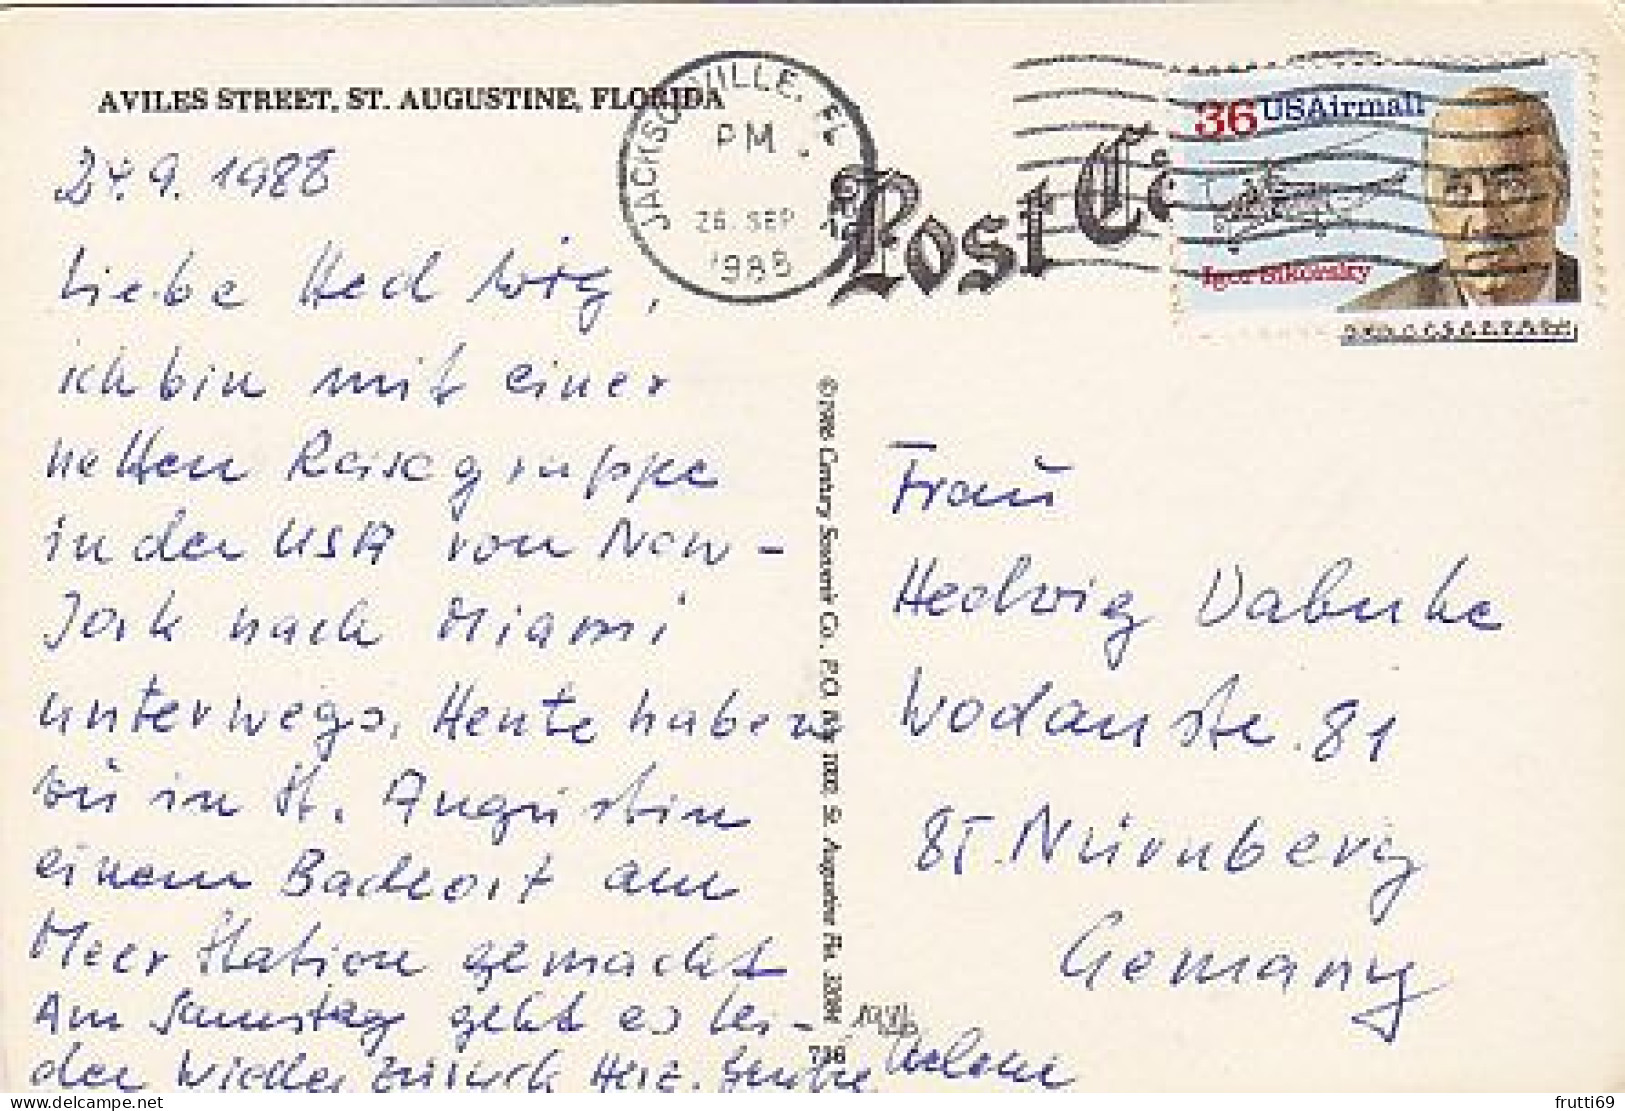 AVILES STREET, ST. AUGUSTINE, FLORIDA
24.9.1988
Liebe Hedwig,
ich bin mit einer
netten Reisegruppe
in der USA von New-
York nach Miami
unterwegs. Heute haben
wir in St. Augustin
einem Badeort am
Meer Station gemacht
Am Samstag geht es lei-
der wieder zurück Herz. Grüße
Helene
JACKSONVILLE, FL
PM
26. SEP
1988
Post
36 USAirmail
Igor Sikorsky
© 1986 Century Souvenir Co. P.O. Box 1000, St. Augustine Fla. 32084
Frau
Hedwig
Wodanstr. 81
85 Nürnberg
Gemany
frutti69